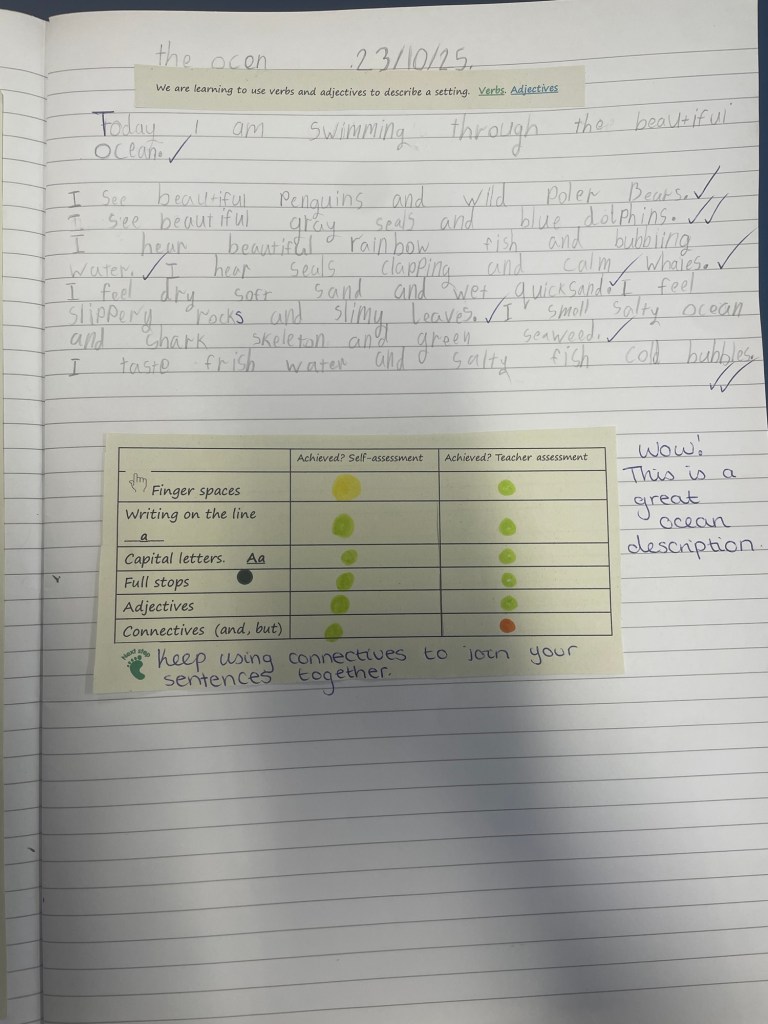 the ocen 23/10/25.
We are learning to use verbs and adjectives to describe a setting. Verbs. Adjectives
Today I am swimming through the beautiful
ocean.
I see beautiful Penguins and wild Poler Bears.
I see beautiful gray seals and blue dolphins.
I hear beautiful rainbow fish and bubbling
water. I hear seals clapping and calm whales.
I feel dry soft sand and wet quicksand. I feel
slippery rocks and slimy leaves. I smell salty ocean
and shark skeleton and green seaweed.
I taste frish water and salty fish cold bubbles.
Achieved? Self-assessment Achieved? Teacher assessment
Finger spaces
Writing on the line
a
Capital letters. Aa
Full stops
Adjectives
Connectives (and, but)
Wow!
This is a
great
ocean
description.
Next step
Keep using connectives to join your
sentences together.